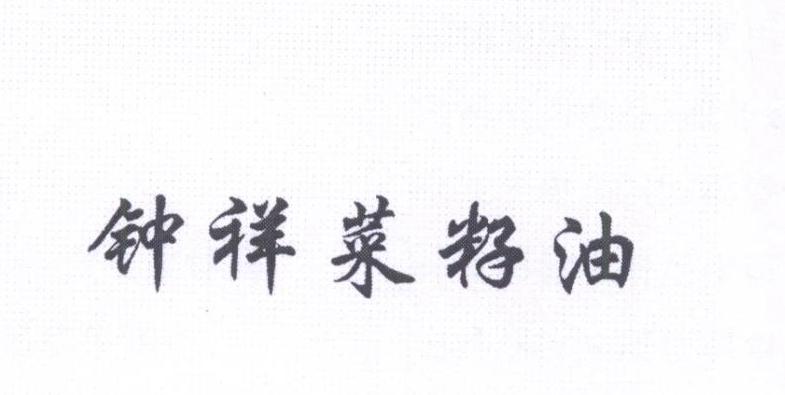 钟祥菜籽油